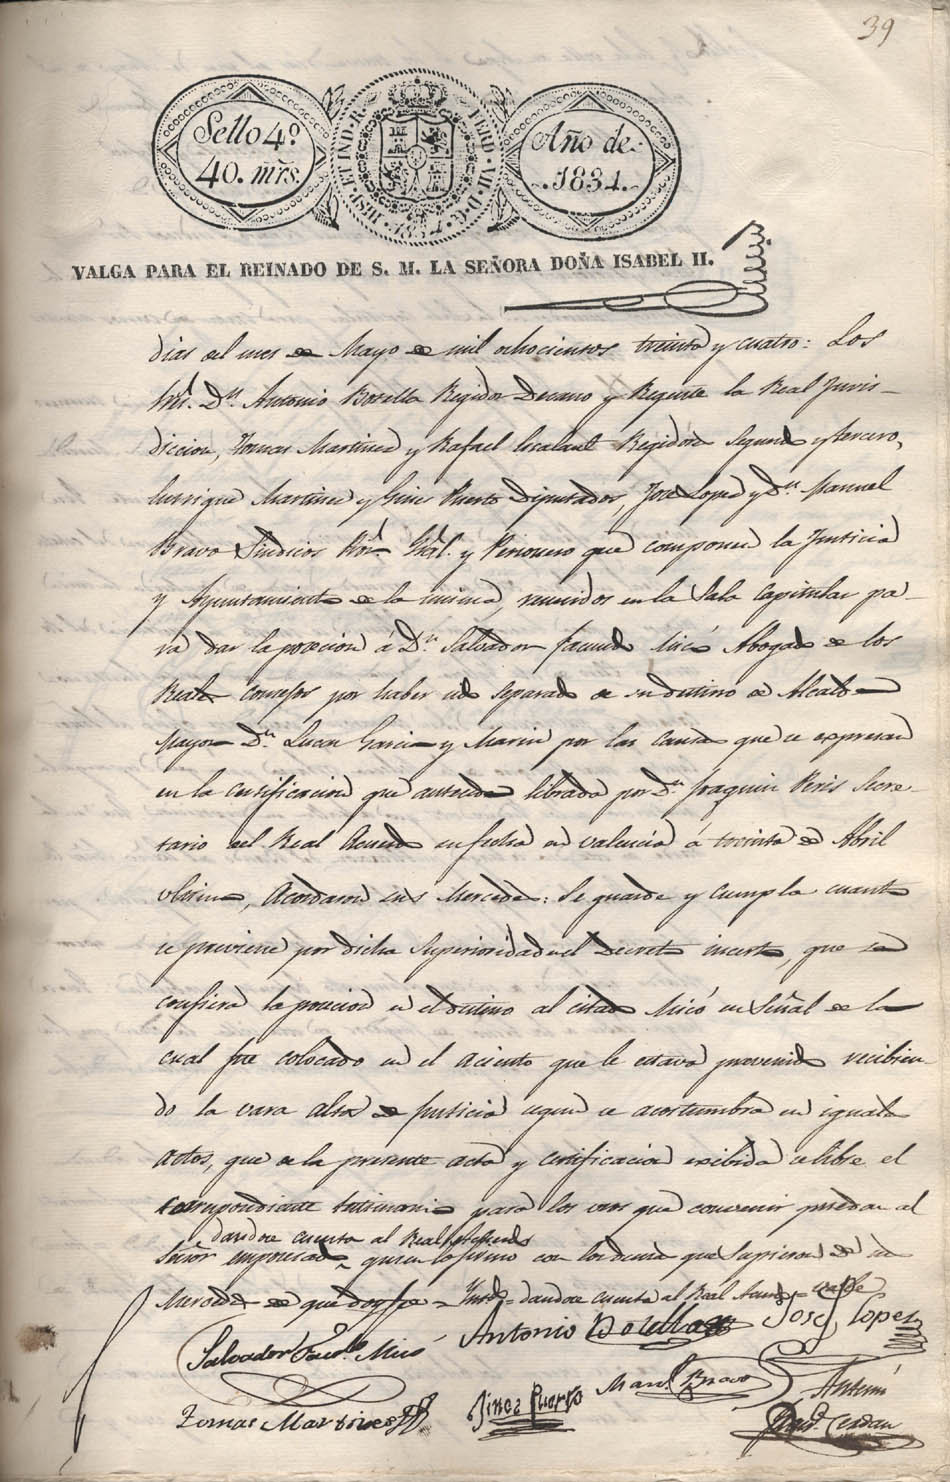 39
Sello 4º
40. mrs.
HISP. ET IND. R. FERD. VII. D. G. 1834
Año de
1834.
VALGA PARA EL REINADO DE S. M. LA SEÑORA DOÑA ISABEL II.
dias del mes de Mayo de mil ochocientos treinta y cuatro: Los
Sres. Dn. Antonio Botella Regidor Decano y Regente la Real Juris-
diccion, Tomas Martinez y Rafael Regidores segundo y tercero,
Enrrique Martinez y Gines Puerto Diputados, Jose Lopez y Dn. Manuel
Bravo Sindicos Gral. y Personero que componen la Justicia
y Ayuntamiento de la misma, reunidos en la Sala Capitular pa-
ra dar la posecion á Dn. Salvador Facundo Micó Abogado de los
Reales consejos por haber sido separado de su destino de Alcalde
Mayor Dn. Lucas Garcia y Marin por las causas que se expresan
en la certificacion que antecede librada por Dn. Joaquin Peris Secre-
tario del Real Acuerdo su fecha en Valencia á treinta de Abril
ultimo, Acordaron sus Mercedes: Se guarde y cumpla cuanto
se previene por dicha Superioridad en el Decreto inserto, que se
confiera la posecion en el destino al citado Micó en Señal de la
cual fue colocado en el aciento que le estava prevenido recibien-
do la vara alta de justicia segun se acostumbra en iguales
actos, que de la presente acta y certificacion exibida se libre el
correspondiente testimonio para los usos que convenir puedan al
dandose cuenta al Real
Señor empocesado, quien lo firmo con los demas que supieron de sus
Mercedes de que doy fe = dandose cuenta al Real Acuerdo = vale
Salvador Facdo. Micó
Antonio Botella
Jose Lopez
Tomas Martinez
Gines Puerto
Manl. Bravo
Antemi
Cerdan